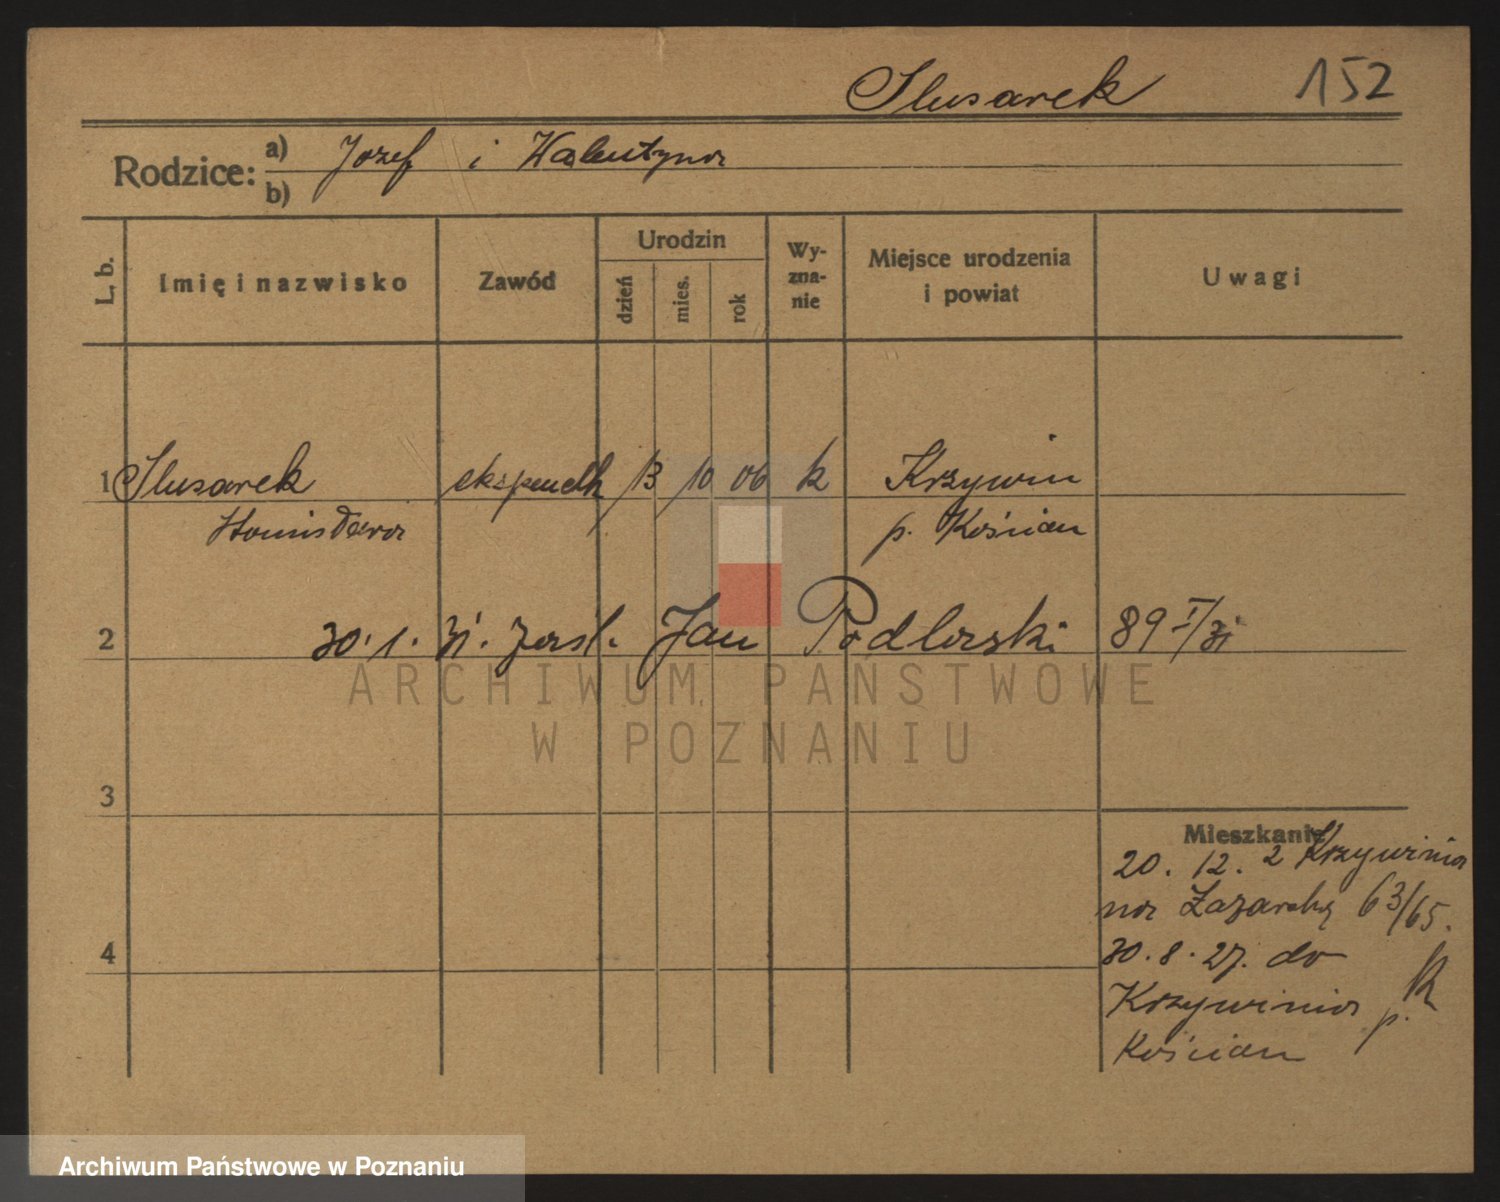 Slusarek 152
Rodzice: a) Jozef i Walentyna
b)
L. b. Imię i nazwisko Zawód Urodzin dzień mies. rok Wy-zna-nie Miejsce urodzenia i powiat Uwagi
1 Slusarek ekspendk 13 10 06 k Krzywin
Stanisława p. Kościan
2 30.1.31. zaśl. Jan Podlaski 89 I/31
3
Mieszkanie
20. 12. z Krzywinia
na Łazarską 63/65.
4 30.8.27. do
Krzywinia p.
Kościan
ARCHIWUM PAŃSTWOWE
W POZNANIU
Archiwum Państwowe w Poznaniu